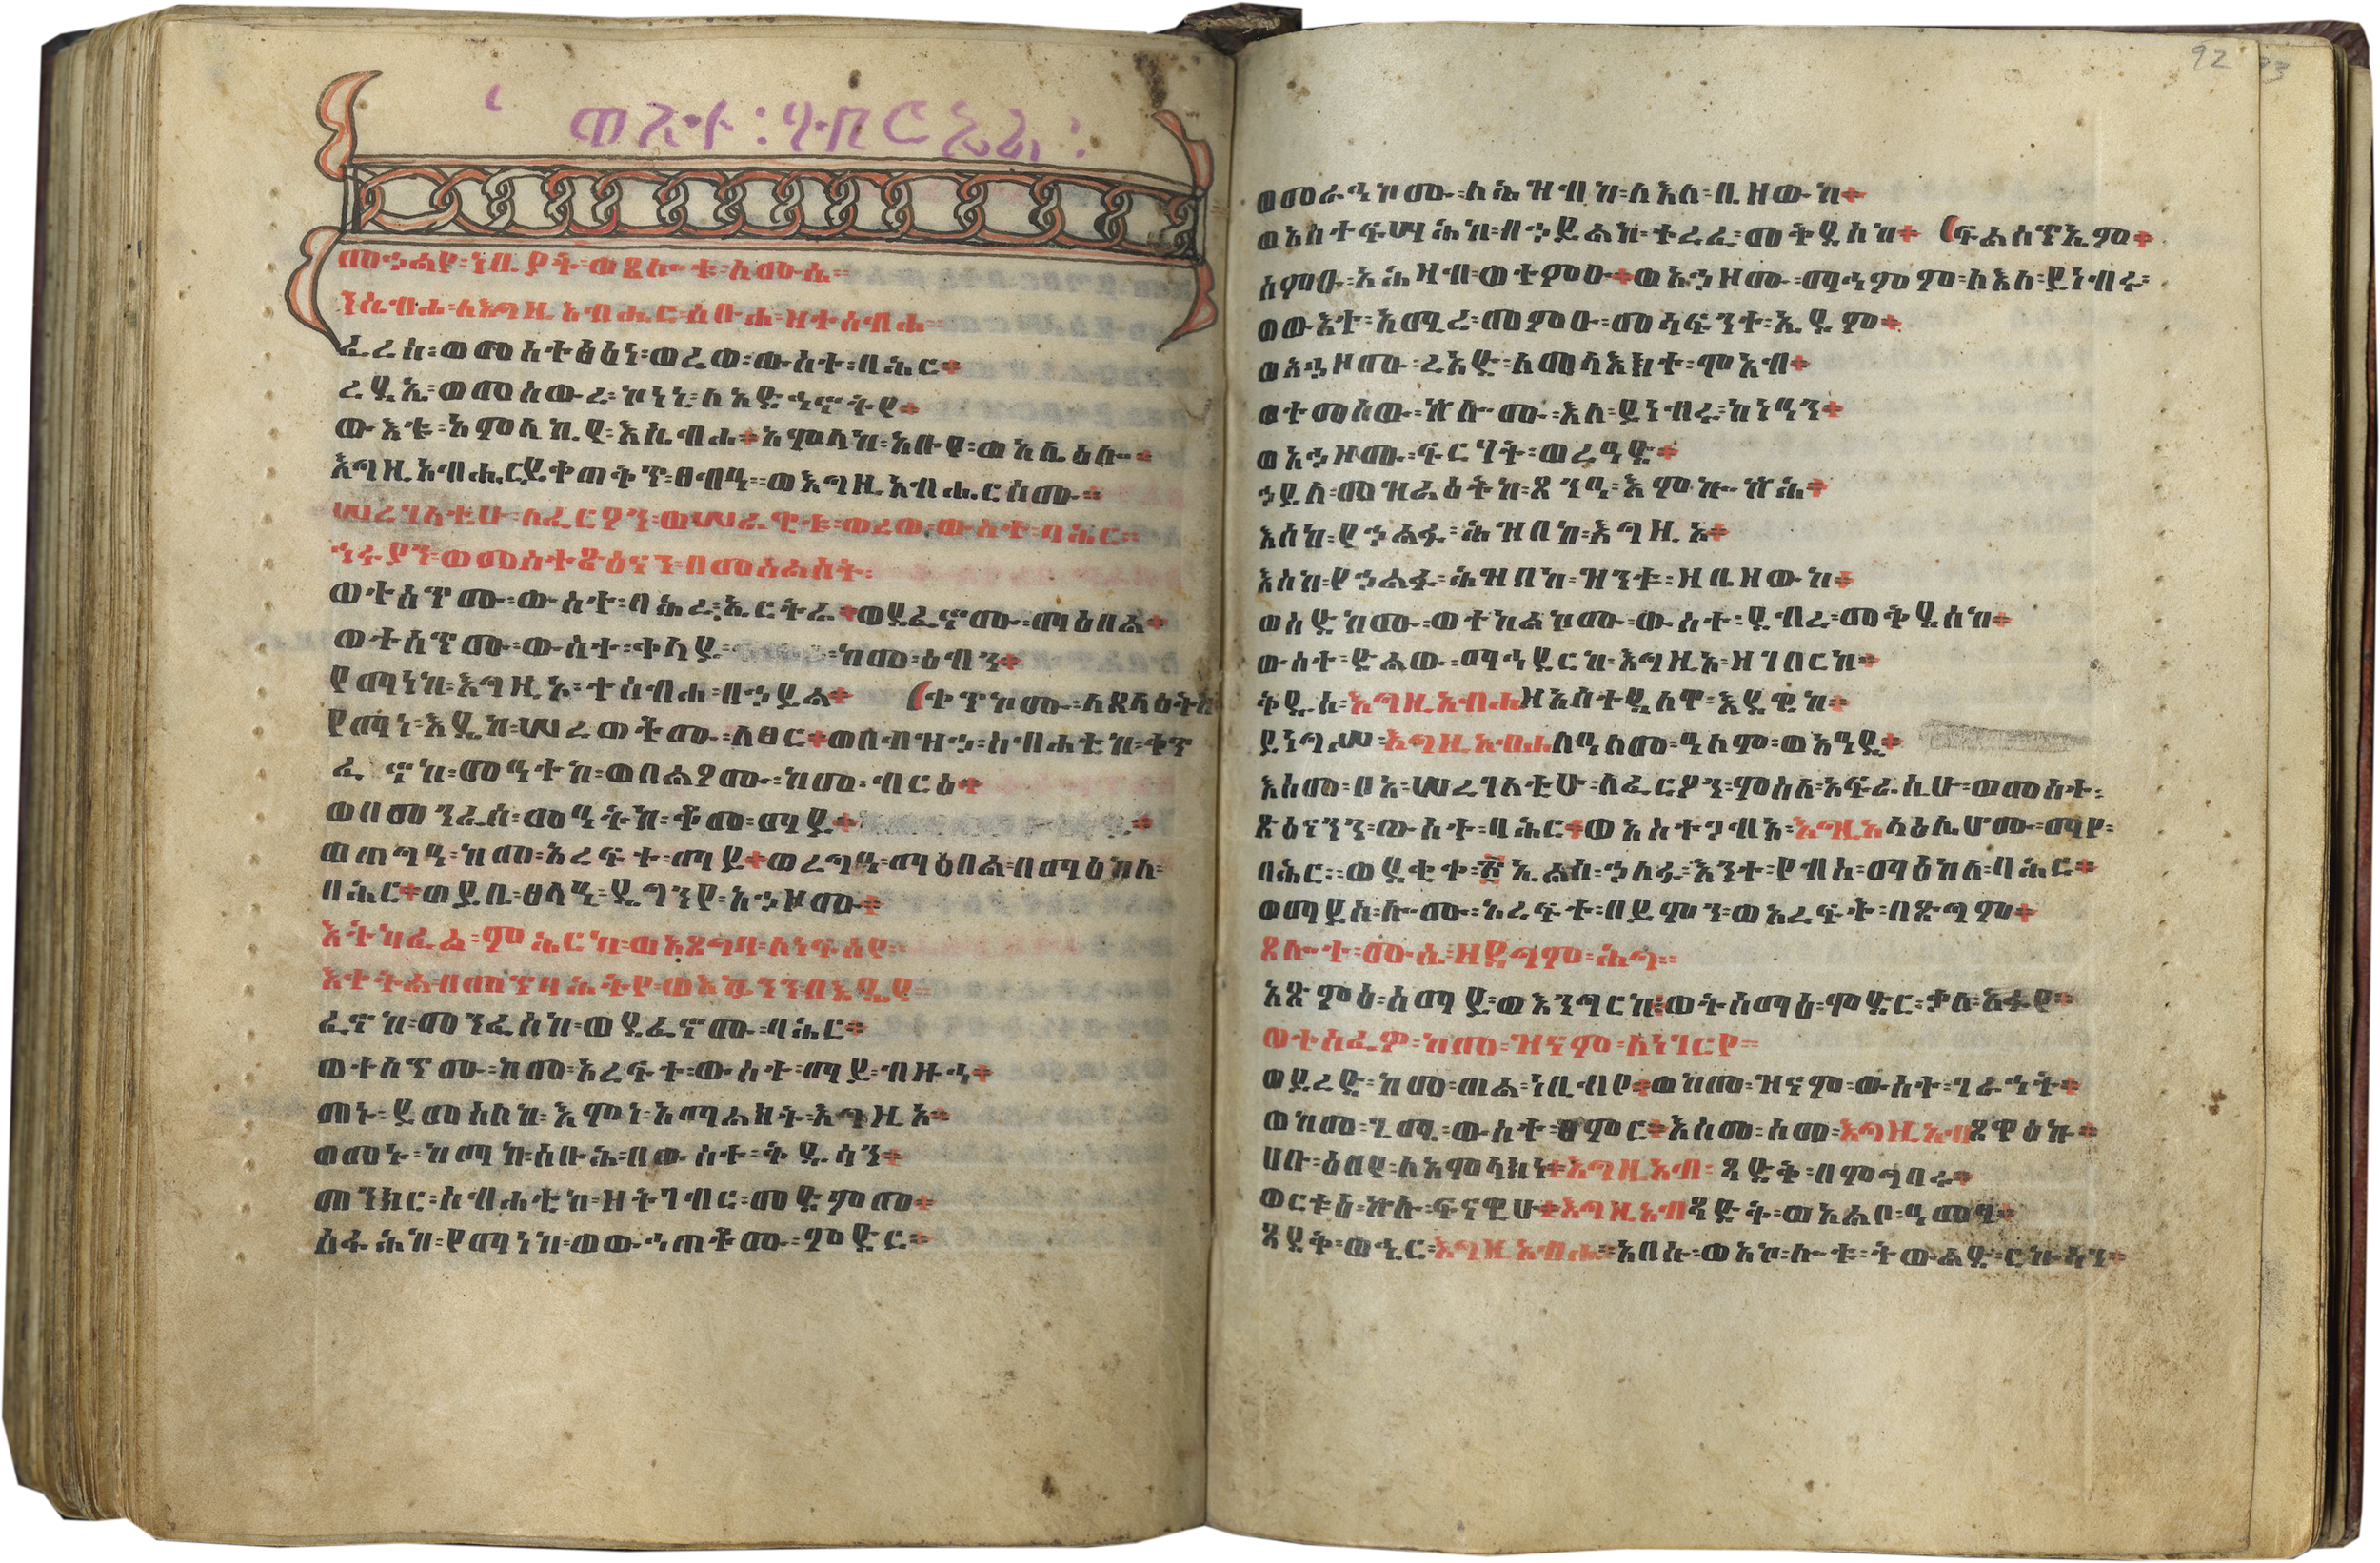 መኃልየ፡ነቢያት፡ወጸሎቱ፡ለሙሴ፡፡
ንሴብሖ፡ለእግዚአብሔር፡ስቡሐ፡ዘተሰብሐ፡፡
ፈረሰ፡ወመስተፅዕነ፡ወረወ፡ውስተ፡ባሕር።
ረዳኢ፡ወመሰውረ፡ኮነነ፡ለአድኅኖትየ።
ውእቱ፡አምላኪየ፡እሴብሖ።አምላከ፡አቡየ፡ወአሌዕሎ።
እግዚአብሔር፡ይቀጠቅጥ፡ፀብዓ፡፡ወእግዚአብሔር፡ስሙ።
ሠረገላቲሁ፡ለፈርዖን፡ወሠራዊቱ፡ወረወ፡ውስተ፡ባሕር፡፡
ኅሩያን፡ወመስተጽዕናን፡በመስልስት፡
ወተሰጥሙ፡ውስተ፡ባሕረ፡ኤርትራ።ወደፈኖሙ፡ማዕበል።
ወተሰጥሙ፡ውስተ፡ቀላይ፡ከመ፡ዕብን።
የማነከ፡እግዚኦ፡ተሰብሐ፡በኃይል። (ቀጥቀጦሙ፡ለጸላዕትከ
የማነ፡እዴከ፡ሠረወቶሙ፡ለፀር።ወበብዝኃ፡ስብሐቲከ፡ቀጥ
ፈኖከ፡መዓተከ፡ወበልዖሙ፡ከመ፡ብርዕ።
ወበመንፈሰ፡መዓትከ፡ቆመ፡ማይ።
ወጠግዓ፡ከመ፡አረፍት፡ማይ።ወረግዓ፡ማዕበል፡በማዕከለ፡
ባሕር።ወይቤ፡ፀላዒ፡ዴግንየ፡አኃዞሙ።
እትካፈል፡ምሕርካ፡ወአጸግባ፡ለነፍስየ፡፡
እቀትል፡በመጥባሕትየ፡ወእኴንን፡በእዴየ፡፡
ፈኖከ፡መንፈሰከ፡ወደፈኖሙ፡ባሕር።
ወተሰጥሙ፡ከመ፡አረፍት፡ውስተ፡ማይ፡ብዙኅ።
መኑ፡ይመስለከ፡እምነ፡አማልክት፡እግዚኦ።
ወመኑ፡ከማከ፡ስቡሕ፡በውስተ፡ቅዱሳን።
መንክር፡ስብሐቲከ፡ዘትገብር፡መድምመ።
ሰፋሕከ፡የማነከ፡ወውኅጠቶሙ፡ምድር።
ወመራኅኮሙ፡ለሕዝብከ፡ለእለ፡ቤዘውከ።
ወአስተፍሣሕከ፡በኃይልከ፡ተረፈ፡መቅደስከ። (ፍልስጥኤም።
ሰምዑ፡አሕዛብ፡ወተምዑ።ወአኃዞሙ፡ማኅምም፡ለእለ፡ይነብሩ፡
ወውእተ፡አሚረ፡መምዑ፡መሳፍንተ፡ኤዶም።
ወአኃዞሙ፡ረአድ፡ለመላእክተ፡ሞአብ።
ወተመስወ፡ኵሎሙ፡እለ፡ይነብሩ፡ከነዓን።
ወአኃዞሙ፡ፍርሃት፡ወረዓድ።
ኃይለ፡መዝራዕትከ፡ጸንዓ፡እምኰኵሕ።
እስከ፡የኃልፍ፡ሕዝብከ፡እግዚኦ።
እስከ፡የኃልፍ፡ሕዝብከ፡ዝንቱ፡ዘቤዘውከ።
ወስድኮሙ፡ወተከልኮሙ፡ውስተ፡ደብረ፡መቅደስከ።
ውስተ፡ድልው፡ማኅደርከ፡እግዚኦ፡ዘገበርከ።
ቅዱሰ፡እግዚአብሔዘአስተዳለዋ፡እደዊከ።
ይነግሥ፡እግዚአብሔለዓለመ፡ዓለም፡ወዓዲ።
እስመ፡ቦአ፡ሠረገላቲሁ፡ለፈርዖን፡ምስለ፡አፍራሲሁ፡ወመስተ፡
ጽዕናን፡ውስተ፡ባሕር።ወአስተጋብአ፡እግዚአላዕሌሆሙ፡ማየ፡
ባሕር፡፡ወደቂቀ፡፳ኤልሰ፡ኃለፉ፡እንተ፡የብሰ፡ማዕከለ፡ባሕር።
ወማይሰ፡ኮሙ፡አረፍት፡በይምን፡ወአረፍት፡በጽግም።
ጸሎተ፡ሙሴ፡ዘዳግም፡ሕግ፡፡
አጽምዕ፡ሰማይ፡ወእንግርከ፡ወትስማዕ፡ምድር፡ቃለ፡አፉየ።
ወተሰፈዎ፡ከመ፡ዝናም፡ለነገርየ፡፡
ወይረድ፡ከመ፡ጠል፡ነቢብየ።ወከመ፡ዝናም፡ውስተ፡ገራኅት።
ወከመ፡ጊሜ፡ውስተ፡ፀምር።እስመ፡ስመ፡እግዚአብጸዋዕኩ።
ሀቡ፡ዕበየ፡ለአምላክነ።እግዚአብ፡ጻድቅ፡በምግባሩ።
ወርቱዕ፡ኵሉ፡ፍናዊሁ።እግዚአብጻድቅ፡ወአልቦ፡ዓመፃ።
ጻድቅ፡ወኄር፡እግዚአብሔ፡አበሱ፡ወአኮ፡ሎቱ፡ትውልድ፡ርኩሳን።
92